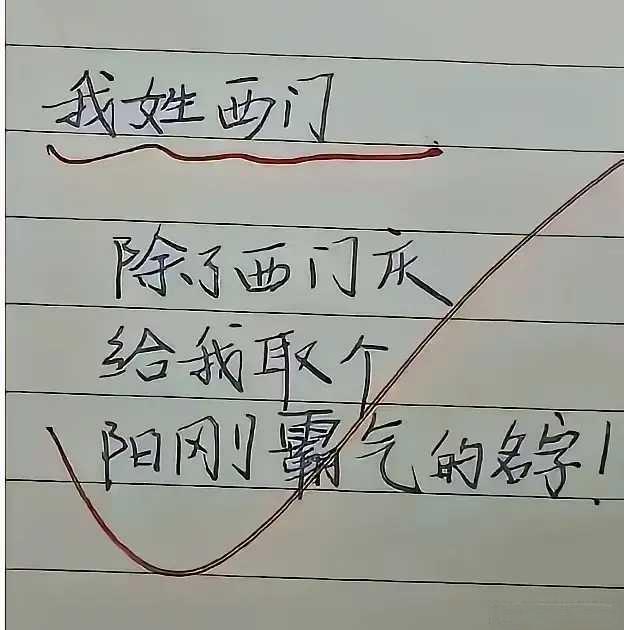 我姓西门
除了西门庆
给我取个
阳刚霸气的名字！